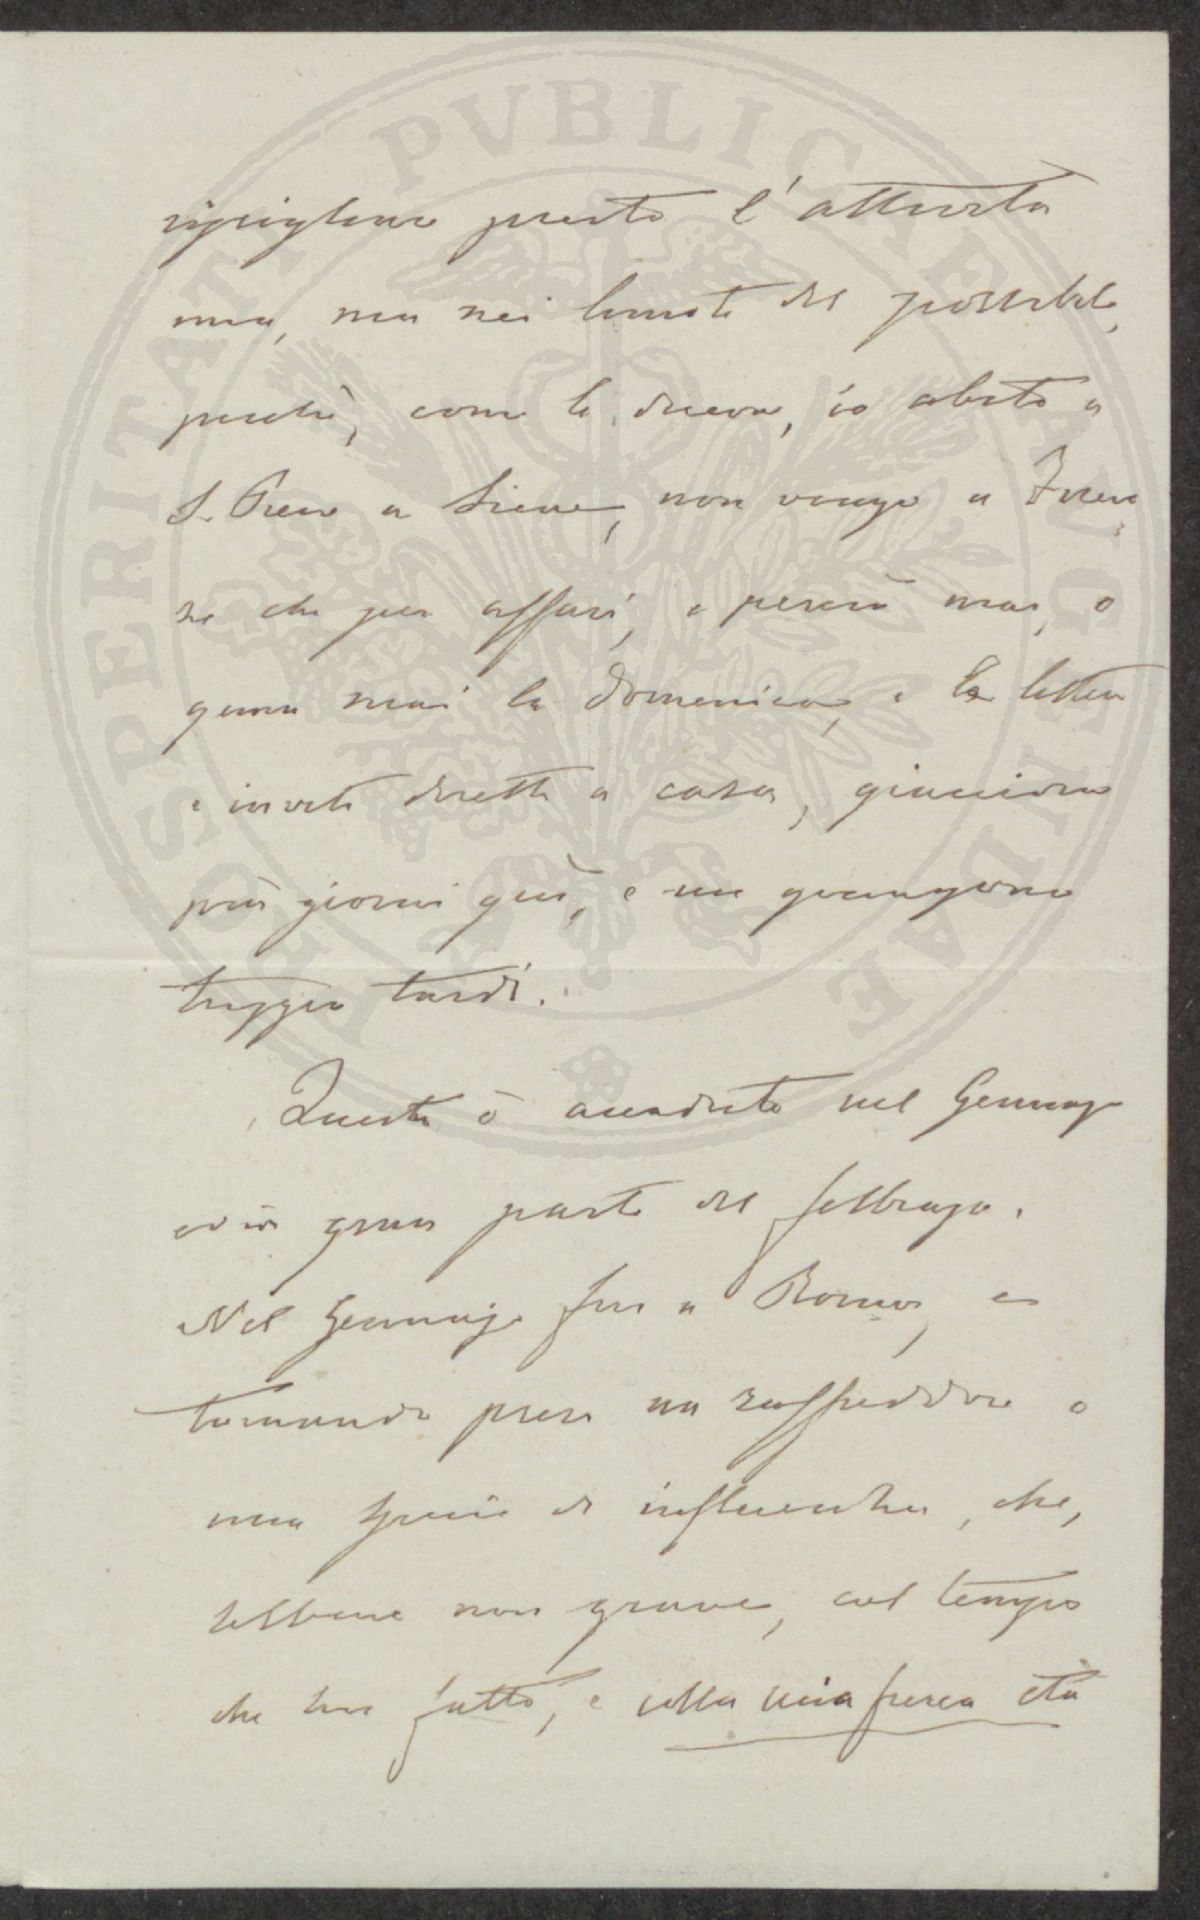 ripigliare presto l'attività
mia, ma nei limiti del possibile,
perché, come le dicevo, io abito a
S. Piero a Sieve, non vengo a Firen
ze che per affari, e perciò mai, o
quasi mai la domenica, e le lettere
e inviti diretti a casa, giacciono
più giorni qui, e mi giungono
troppo tardi.
Questo è accaduto nel Gennajo
ed in gran parte del febbrajo.
Nel Gennajo fui a Roma, e
tornando presi un raffreddore o
una specie di influenza, che,
sebbene non grave, col tempo
che ha fatto, e colla mia fresca età
PVBLICAE
PROSPERITATI